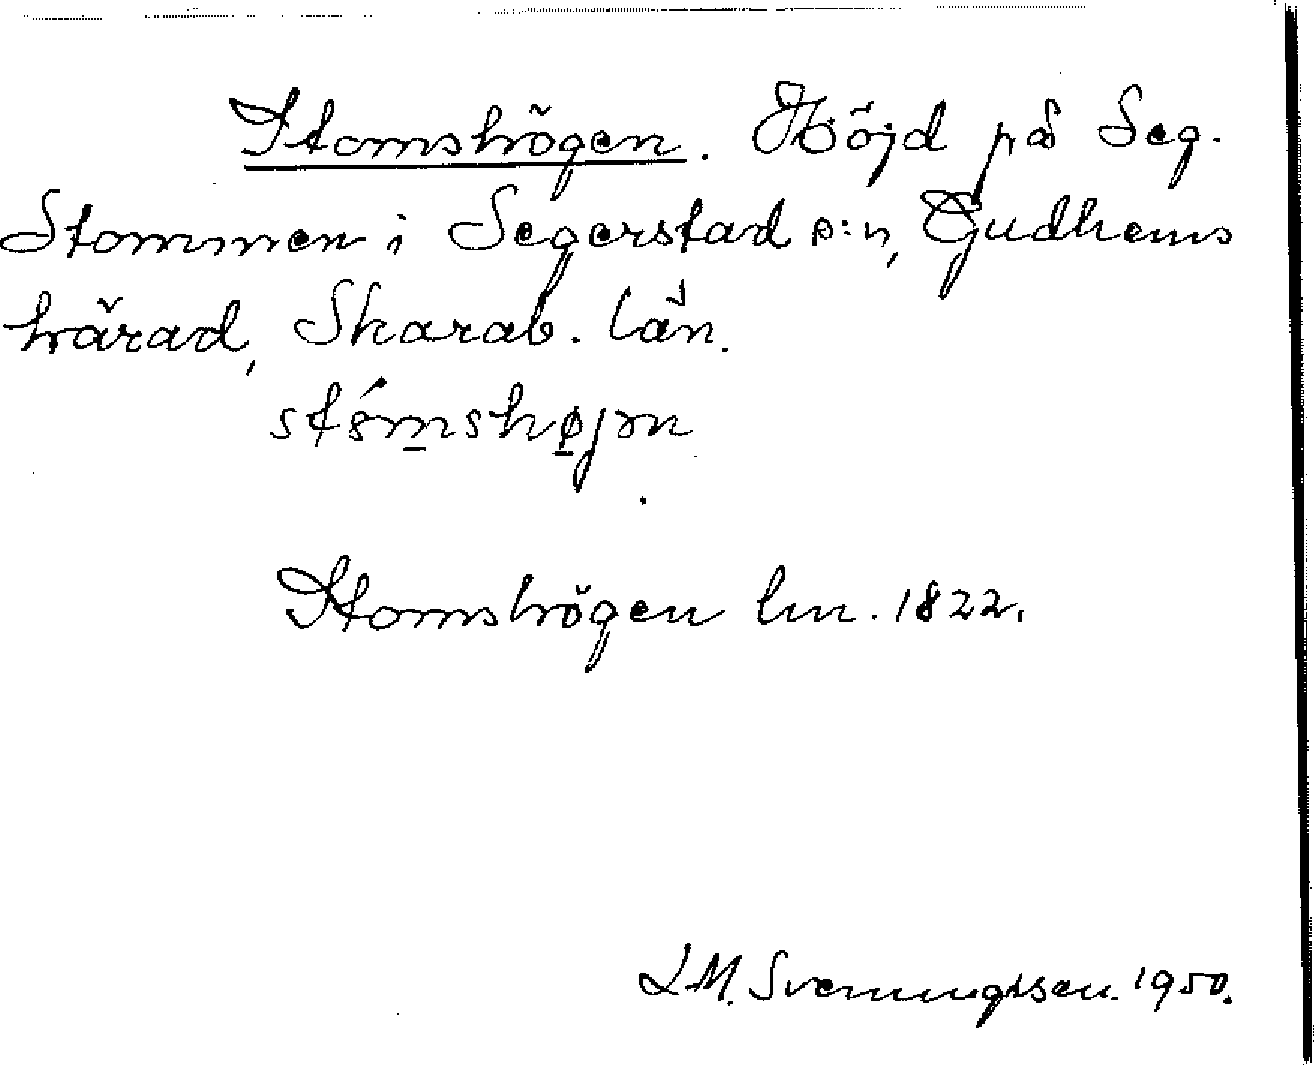 Stomshögen. Höjd på Seg.
Stommen i Segerstad s:n, Gudhems
härad, Skarab. län.
stómshøjən
Stomshögen lm. 1822.
L M. Svenungsson. 1950.